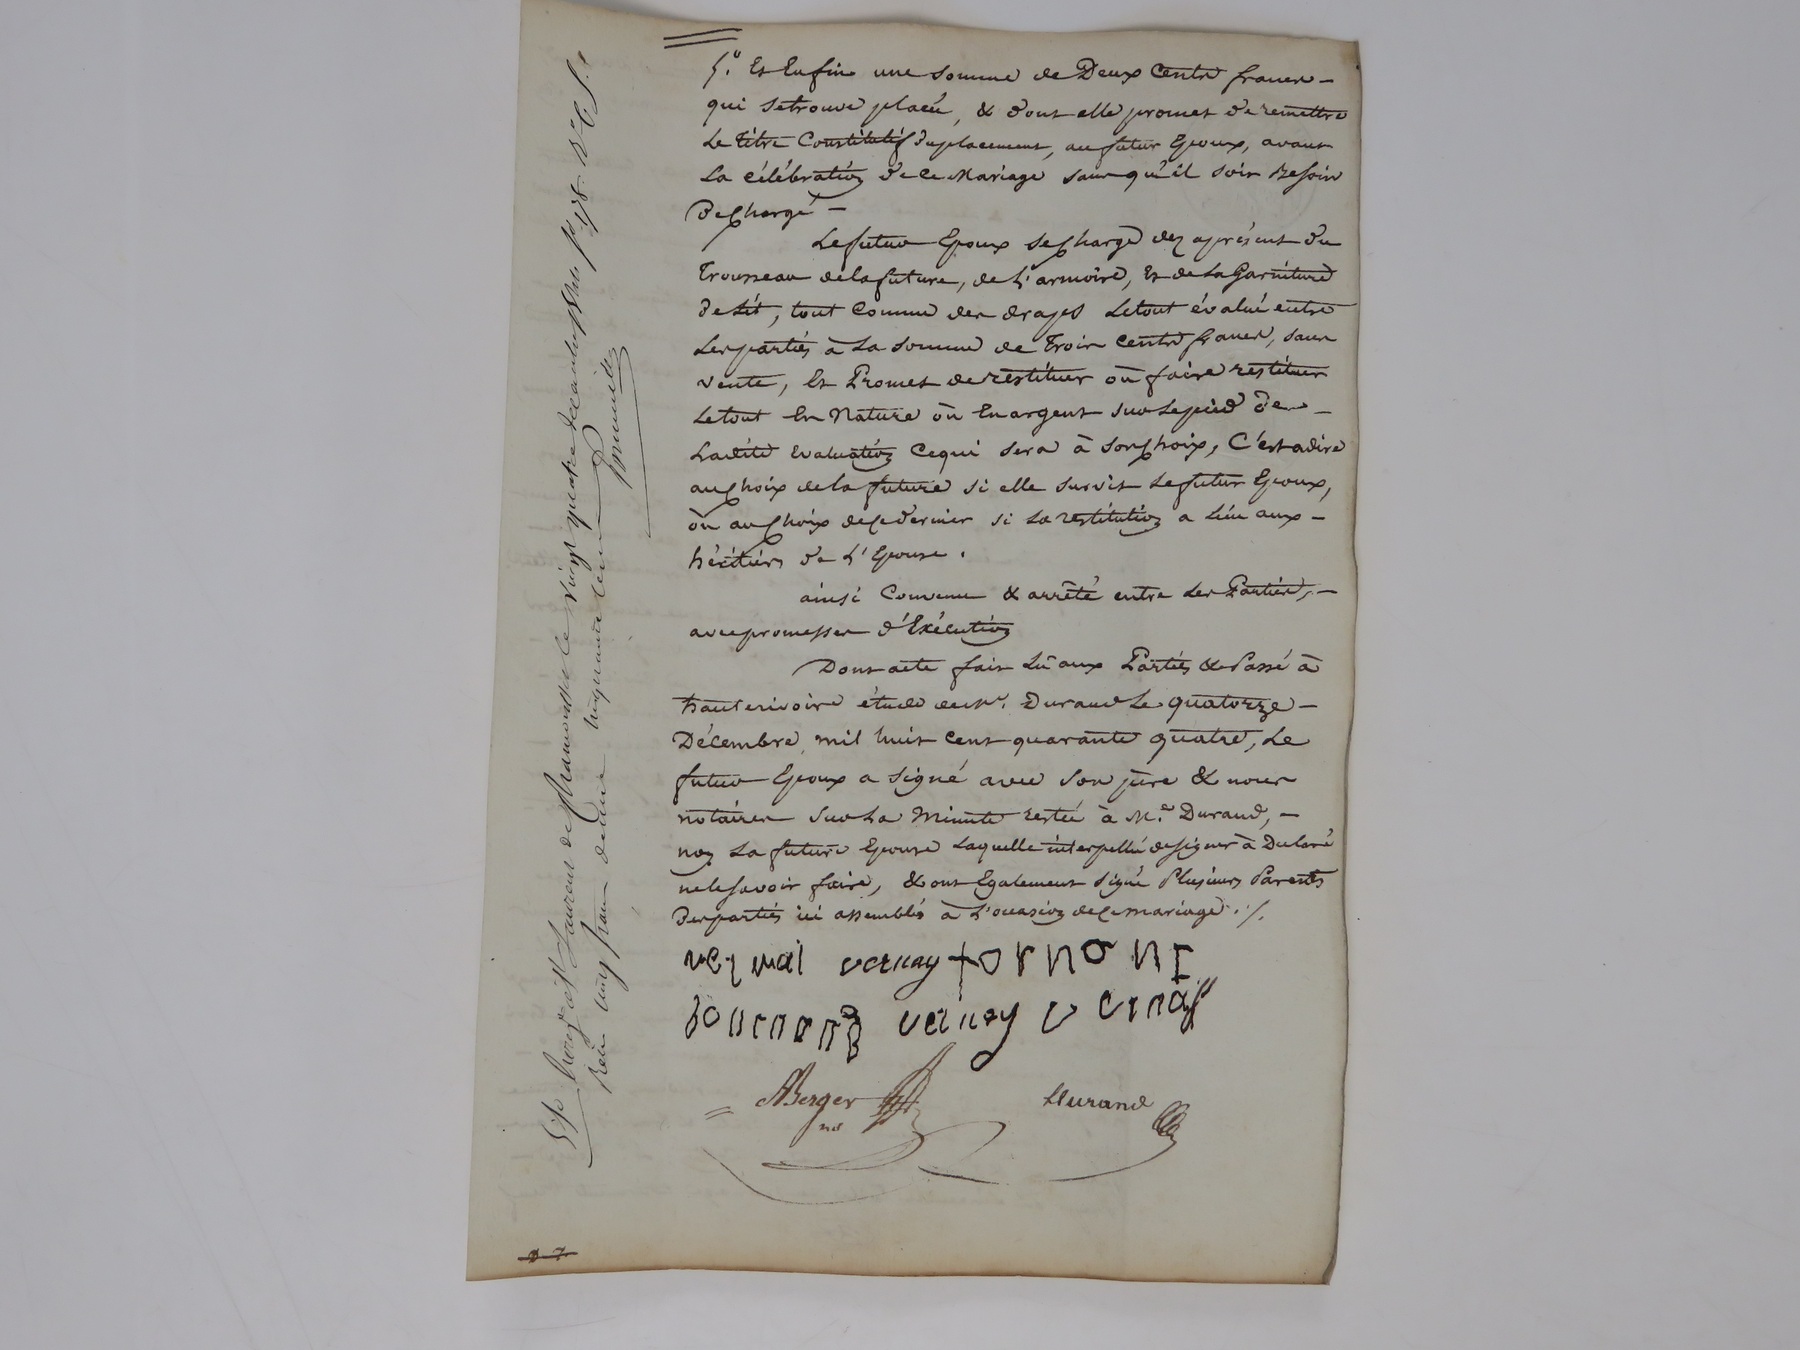 5.° Et Enfin une somme de Deux Cents francs -
qui se trouve placée, & dont elle promet de remettre
Le titre Constitutif du placement, au futur Epoux, avant
La célébration de ce Mariage sans qu'il soit Besoin
De Charge -
Le futur Epoux se Charge dez aprésent du
Trousseau de la future, de L'armoire, Et de La Garniture
de Lit, tout Comme des draps Le tout évalué entre
Les parties à La somme de Trois Cents francs, sans
vente, Et Promet de restituer où faire restituer
Le tout En Nature où En argent sur Le pied De -
Ladite Evaluation Ce qui sera à son Choix, C'est adire
au Choix de la future si elle survit Le futur Epoux,
où au Choix de Ce dernier si La restitution a Lieu aux -
héritiers de L'Epouse.
ainsi Convenu & arrêté entre Les Parties, -
avec promesses d'Exécution
Dont acte fait Lû aux Parties & Passé à
hauterivoire étude de Mr. Durand Le quatorze -
Décembre mil huit cent quarante quatre, Le
futur Epoux a signé avec son père & nous
notaires sur La Minute restée à M.e Durand, -
non La future Epouse Laquelle interpellée de signer à Déclaré
ne le savoir faire, & ont Egalement signé Plusieurs Parents
Des parties ici assemblés à L'occasion de Ce mariage ./.
vernay
vernay
ABerger
no
Durand
St Laurent de Chamousset le vingt quatre décembre